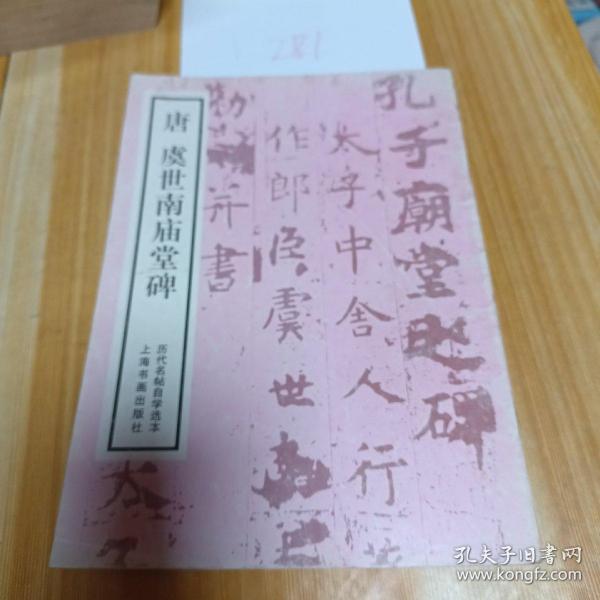 281
唐 虞世南庙堂碑
历代名帖自学选本
上海书画出版社
孔子廟堂之碑
太子中舍人行
作郎臣虞世南
勑書
太子
孔夫子旧书网
www.kongfz.com